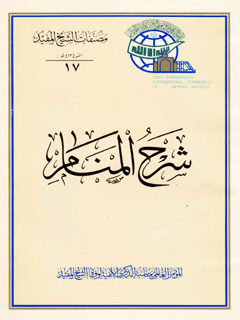 مصنفات الشيخ المفيد
١٧
INTERNATIONAL CONGRESS
شرح المنام
المؤتمر العالمي بمناسبة الذكرى الألفية لوفاة الشيخ المفيد